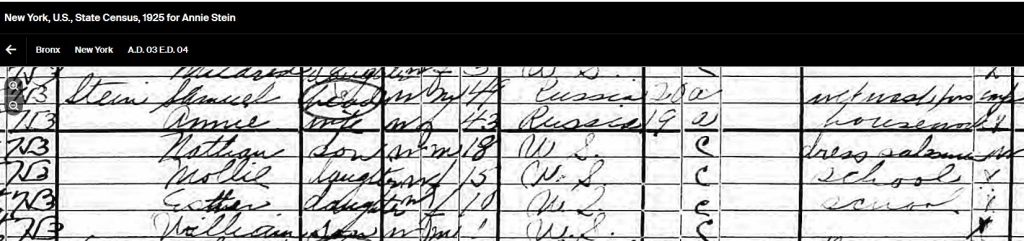 New York, U.S., State Census, 1925 for Annie Stein
Bronx New York A.D. 03 E.D. 04
Mildred daughter f 3 U.S. C
713 Stein Samuel head w m Russia 20 a
713 Annie wife w f 43 Russia 19 a housework x
713 Nathan son w m 18 U S C dress salesman
713 Mollie daughter w f 15 U.S. C school x
713 Esther daughter w f 10 U.S. C school
713 William son w m U.S. C x